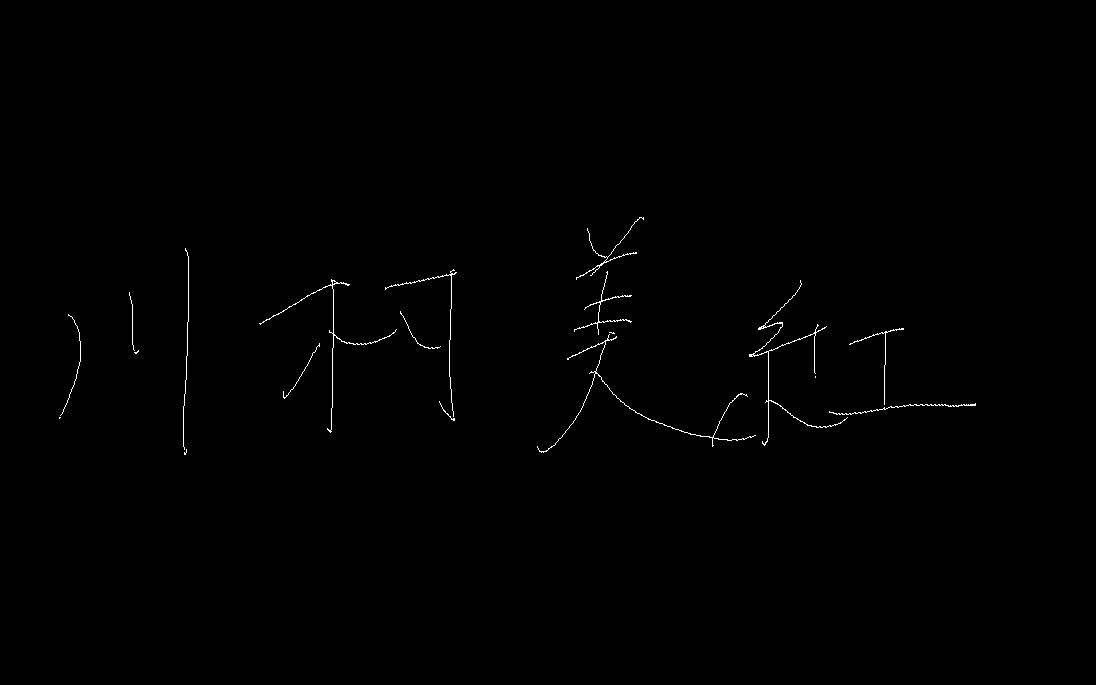 川村美紅